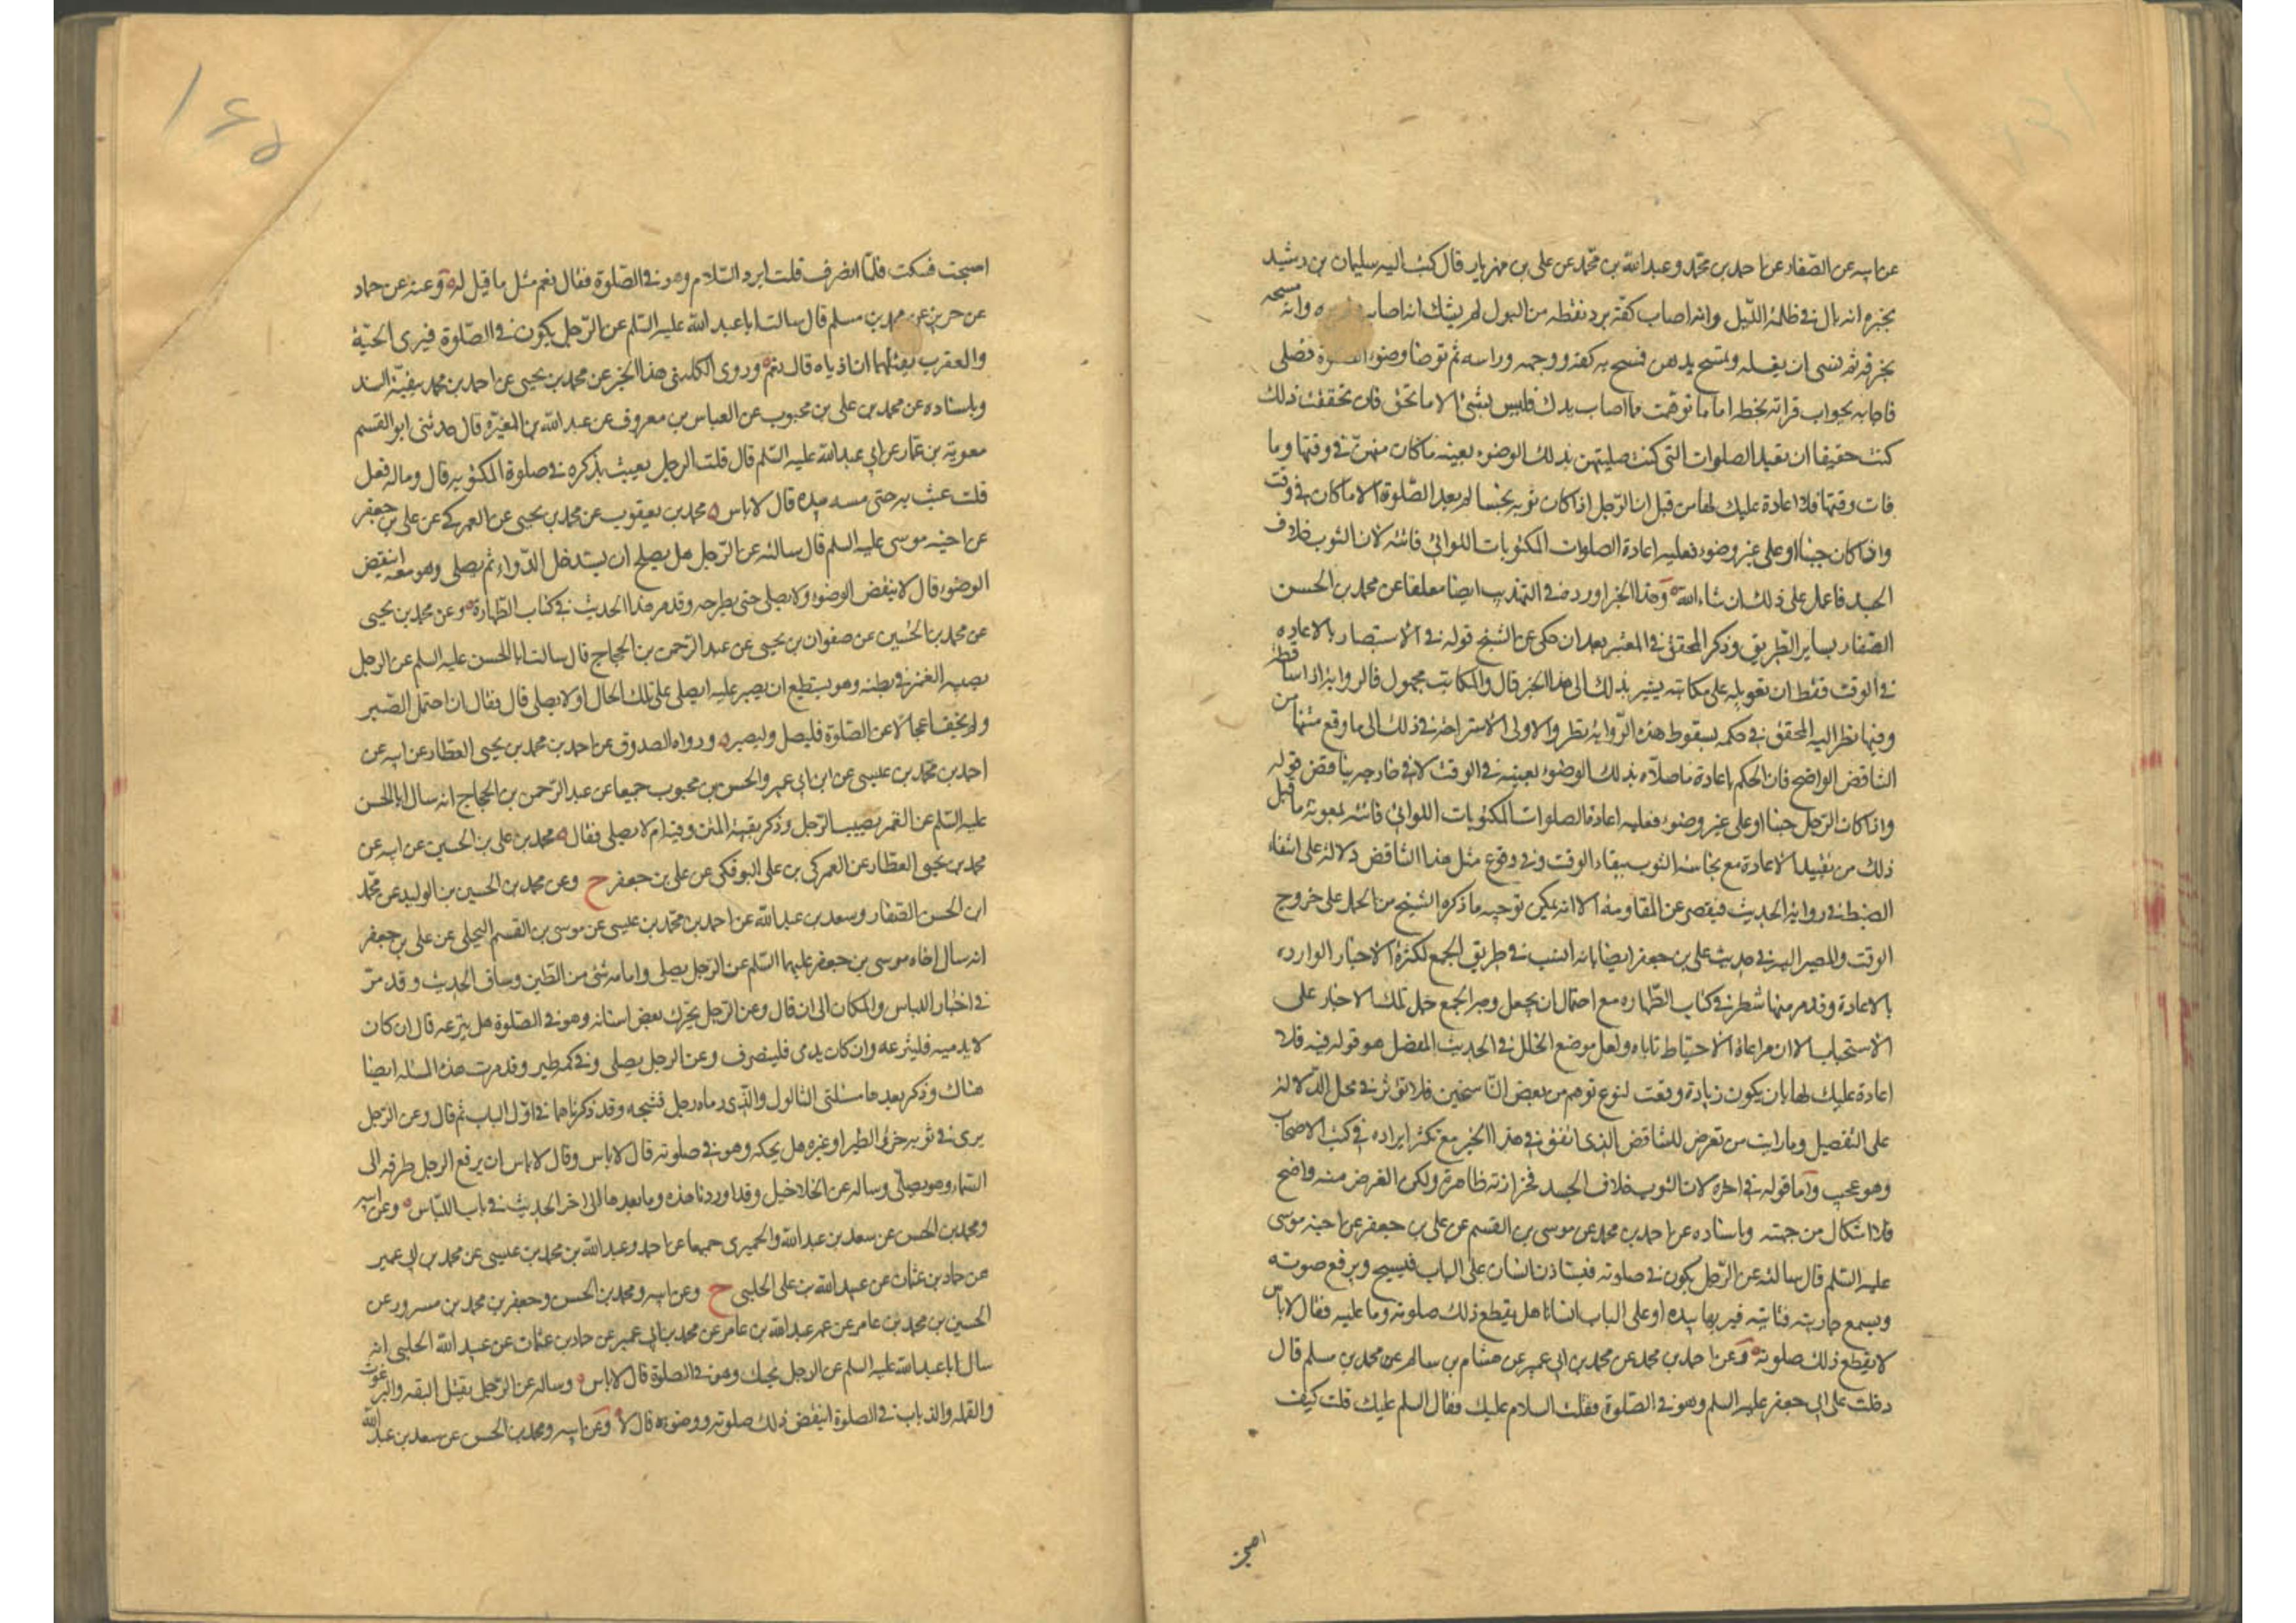 عن ابيه عن الصفار عن احمد بن محمد وعبد الله بن محمد عن علي بن مهزيار قال كتب اليه سليمان بن رشيد
يخبره انه بال في ظلمة الليل وانه اصاب كفه برد نقطه من البول لم يشك انه اصابه ولم يره وانه مسحه
بخرقه ثم نسى ان يغسله وتمسح بدهن فمسح به كفيه ووجهه وراسه ثم توضا وضوء الصلوة فصلى
فاجابه بجواب قراته بخطه اما ما توهمت مما اصاب يدك فليس بشئ الا ما تحقق فان تحققت ذلك
كنت حقيقا ان تعيد الصلوات التى كنت صليتهن بذلك الوضوء بعينه ما كان منهن في وقتها وما
فات وقتها فلا اعادة عليك لها من قبل ان الرجل اذا كان ثوبه نجسا لم يعد الصلوة الا ما كان في وقت
واذا كان جنبا او على غير وضوء فعليه اعادة الصلوات المكتوبات اللواتي فاتته لان الثوب خلاف
الجسد فاعمل على ذلك ان شاء الله وهذا الخبر اورده في التهذيب ايضا معلقا عن محمد بن الحسن
الصفار بساير الطريق وذكر المحقق في المعتبر بعد ان حكى عن الشيخ قوله في الاستبصار بالاعاده
في الوقت فقط ان تعويله على مكاتبه يشير بذلك الى هذا الخبر قال والمكاتب مجهول فالرواية اذا ساقطة
وفيها نظر اليه المحقق في حكمه بسقوط هذه الرواية نظر والاولى الاستراحة في ذلك الى ما وقع في متنها من
التناقض الواضح فان الحكم باعادة ما صلاه بذلك الوضوء بعينه في الوقت لا في خارجه يناقض قوله
واذا كان الرجل جنبا او على غير وضوء فعليه اعادة الصلوات المكتوبات اللواتي فاتته لمعونة ما قبل
ذلك من تقييد الاعادة مع نجاسة الثوب ببقاء الوقت وفي وقوع مثل هذا التناقض دلالة على انتفاء
الضبط في رواية الحديث فيقصر عن المقاومة الا انه يمكن توجيه ما ذكره الشيخ من الحمل على خروج
الوقت والمصير اليه في حديث علي بن جعفر ايضا بانه انسب في طريق الجمع لكثرة الاخبار الوارده
بالاعادة وقد مر منها شطر في كتاب الطهاره مع احتمال ان يجعل وجه الجمع حمل تلك الاخبار على
الاستحباب الا ان مراعاة الاحتياط تاباه ولعل موضع الخلل في الحديث المفصل هو قوله فيه فلا
اعادة عليك لها بان يكون زيادة وقعت لنوع توهم من بعض الناسخين فلا تؤثر في محل الدلالة
على التفصيل وما رايت من تعرض للتناقض الذى اتفق في هذا الخبر مع تكثر ايراده في كتب الاصحاب
وهو عجيب واما قوله في اخره لان الثوب خلاف الجسد فحزازته ظاهرة ولكن الغرض منه واضح
فلا اشكال من جهته وباسناده عن احمد بن محمد عن موسى بن القسم عن علي بن جعفر عن اخيه موسى
عليه السلم قال سالته عن الرجل يكون في صلوته فيستاذن انسان على الباب فيسبح ويرفع صوته
ويسمع جاريته فتاتيه فيريها بيده او على الباب انسانا هل يقطع ذلك صلوته وما عليه فقال لا باس
لا يقطع ذلك صلوته وعن احمد بن محمد عن محمد بن ابي عمير عن هشام بن سالم عن محمد بن مسلم قال
دخلت على ابي جعفر عليه السلم وهو في الصلوة فقلت السلام عليك فقال السلم عليك قلت كيف
اصبحت
اصبحت فسكت فلما انصرف قلت ايرد السلام وهو في الصلوة فقال نعم مثل ما قيل له وعنه عن حماد
عن حريز عن محمد بن مسلم قال سالت ابا عبد الله عليه السلم عن الرجل يكون في الصلوة فيرى الحية
والعقرب يقتلهما ان اذياه قال نعم وروى الكليني هذا الخبر عن محمد بن يحيى عن احمد بن محمد ببقية السند
وباسناده عن محمد بن علي بن محبوب عن العباس بن معروف عن عبد الله بن المغيرة قال حدثنى ابو القسم
معوية بن عمار عن ابي عبد الله عليه السلم قال قلت الرجل يعبث بذكره في صلوة المكتوبه قال وما له فعل
قلت عبث به حتى مسه بيده قال لا باس محمد بن يعقوب عن محمد بن يحيى عن العمركي عن علي بن جعفر
عن اخيه موسى عليه السلم قال سالته عن الرجل هل يصلح ان يستدخل الدواء ثم يصلى وهو معه اينقض
الوضوء قال لا ينقض الوضوء ولا يصلى حتى يطرحه وقد مر هذا الحديث في كتاب الطهارة وعن محمد بن يحيى
عن محمد بن الحسين عن صفوان بن يحيى عن عبد الرحمن بن الحجاج قال سالت ابا الحسن عليه السلم عن الرجل
يصيبه الغمز في بطنه وهو يستطيع ان يصبر عليه ايصلى على تلك الحال او لا يصلى قال فقال ان احتمل الصبر
ولم يخف اعجالا عن الصلوة فليصل وليصبر ورواه الصدوق عن احمد بن محمد بن يحيى العطار عن ابيه عن
احمد بن محمد بن عيسى عن ابن ابي عمير والحسن بن محبوب جميعا عن عبد الرحمن بن الحجاج انه سال ابا الحسن
عليه السلم عن الغمز يصيب الرجل وذكر بقية المتن وفيه ام لا يصلى فقال محمد بن علي بن الحسين عن ابيه عن
محمد بن يحيى العطار عن العمركي بن علي البوفكي عن علي بن جعفر ح وعن محمد بن الحسين بن الوليد عن محمد
ابن الحسن الصفار وسعد بن عبد الله عن احمد بن محمد بن عيسى عن موسى بن القسم البجلي عن علي بن جعفر
انه سال اخاه موسى بن جعفر عليهما السلم عن الرجل يصلى وامامه شئ من الطين وساق الحديث وقد مر
في اخبار اللباس والمكان الى ان قال وعن الرجل يحرك بعض اسنانه وهو في الصلوة هل ينزعه قال ان كان
لا يدميه فلينزعه وان كان يدمى فلينصرف وعن الرجل يصلى وفي كمه طير وقد مرت هذه المسئله ايضا
هناك وذكر بعدها مسئلتى الثالول والذى رماه رجل فشجه وقد ذكرناهما في اول الباب ثم قال وعن الرجل
يرى في ثوبه خرؤ الطير او غيره هل يحكه وهو في صلوته قال لا باس وقال لا باس ان يرفع الرجل طرفه الى
السماء وهو يصلى وساله عن الخلاخيل وقد اوردنا هذه وما بعدها الى اخر الحديث في باب اللباس وعن ابيه
ومحمد بن الحسن عن سعد بن عبد الله والحميرى جميعا عن احمد وعبد الله بن محمد بن عيسى عن محمد بن ابي عمير
عن حماد بن عثمان عن عبيد الله بن علي الحلبى ح وعن ابيه ومحمد بن الحسن وجعفر بن محمد بن مسرور عن
الحسين بن محمد بن عامر عن عمه عبد الله بن عامر عن محمد بن ابي عمير عن حماد بن عثمان عن عبيد الله الحلبى انه
سال ابا عبد الله عليه السلم عن الرجل يحتك وهو في الصلوة قال لا باس وساله عن الرجل يقتل البقه والبرغوث
والقمله والذباب في الصلوة اينقض ذلك صلوته ووضوءه قال لا وعن ابيه ومحمد بن الحسن عن سعد بن عبد الله